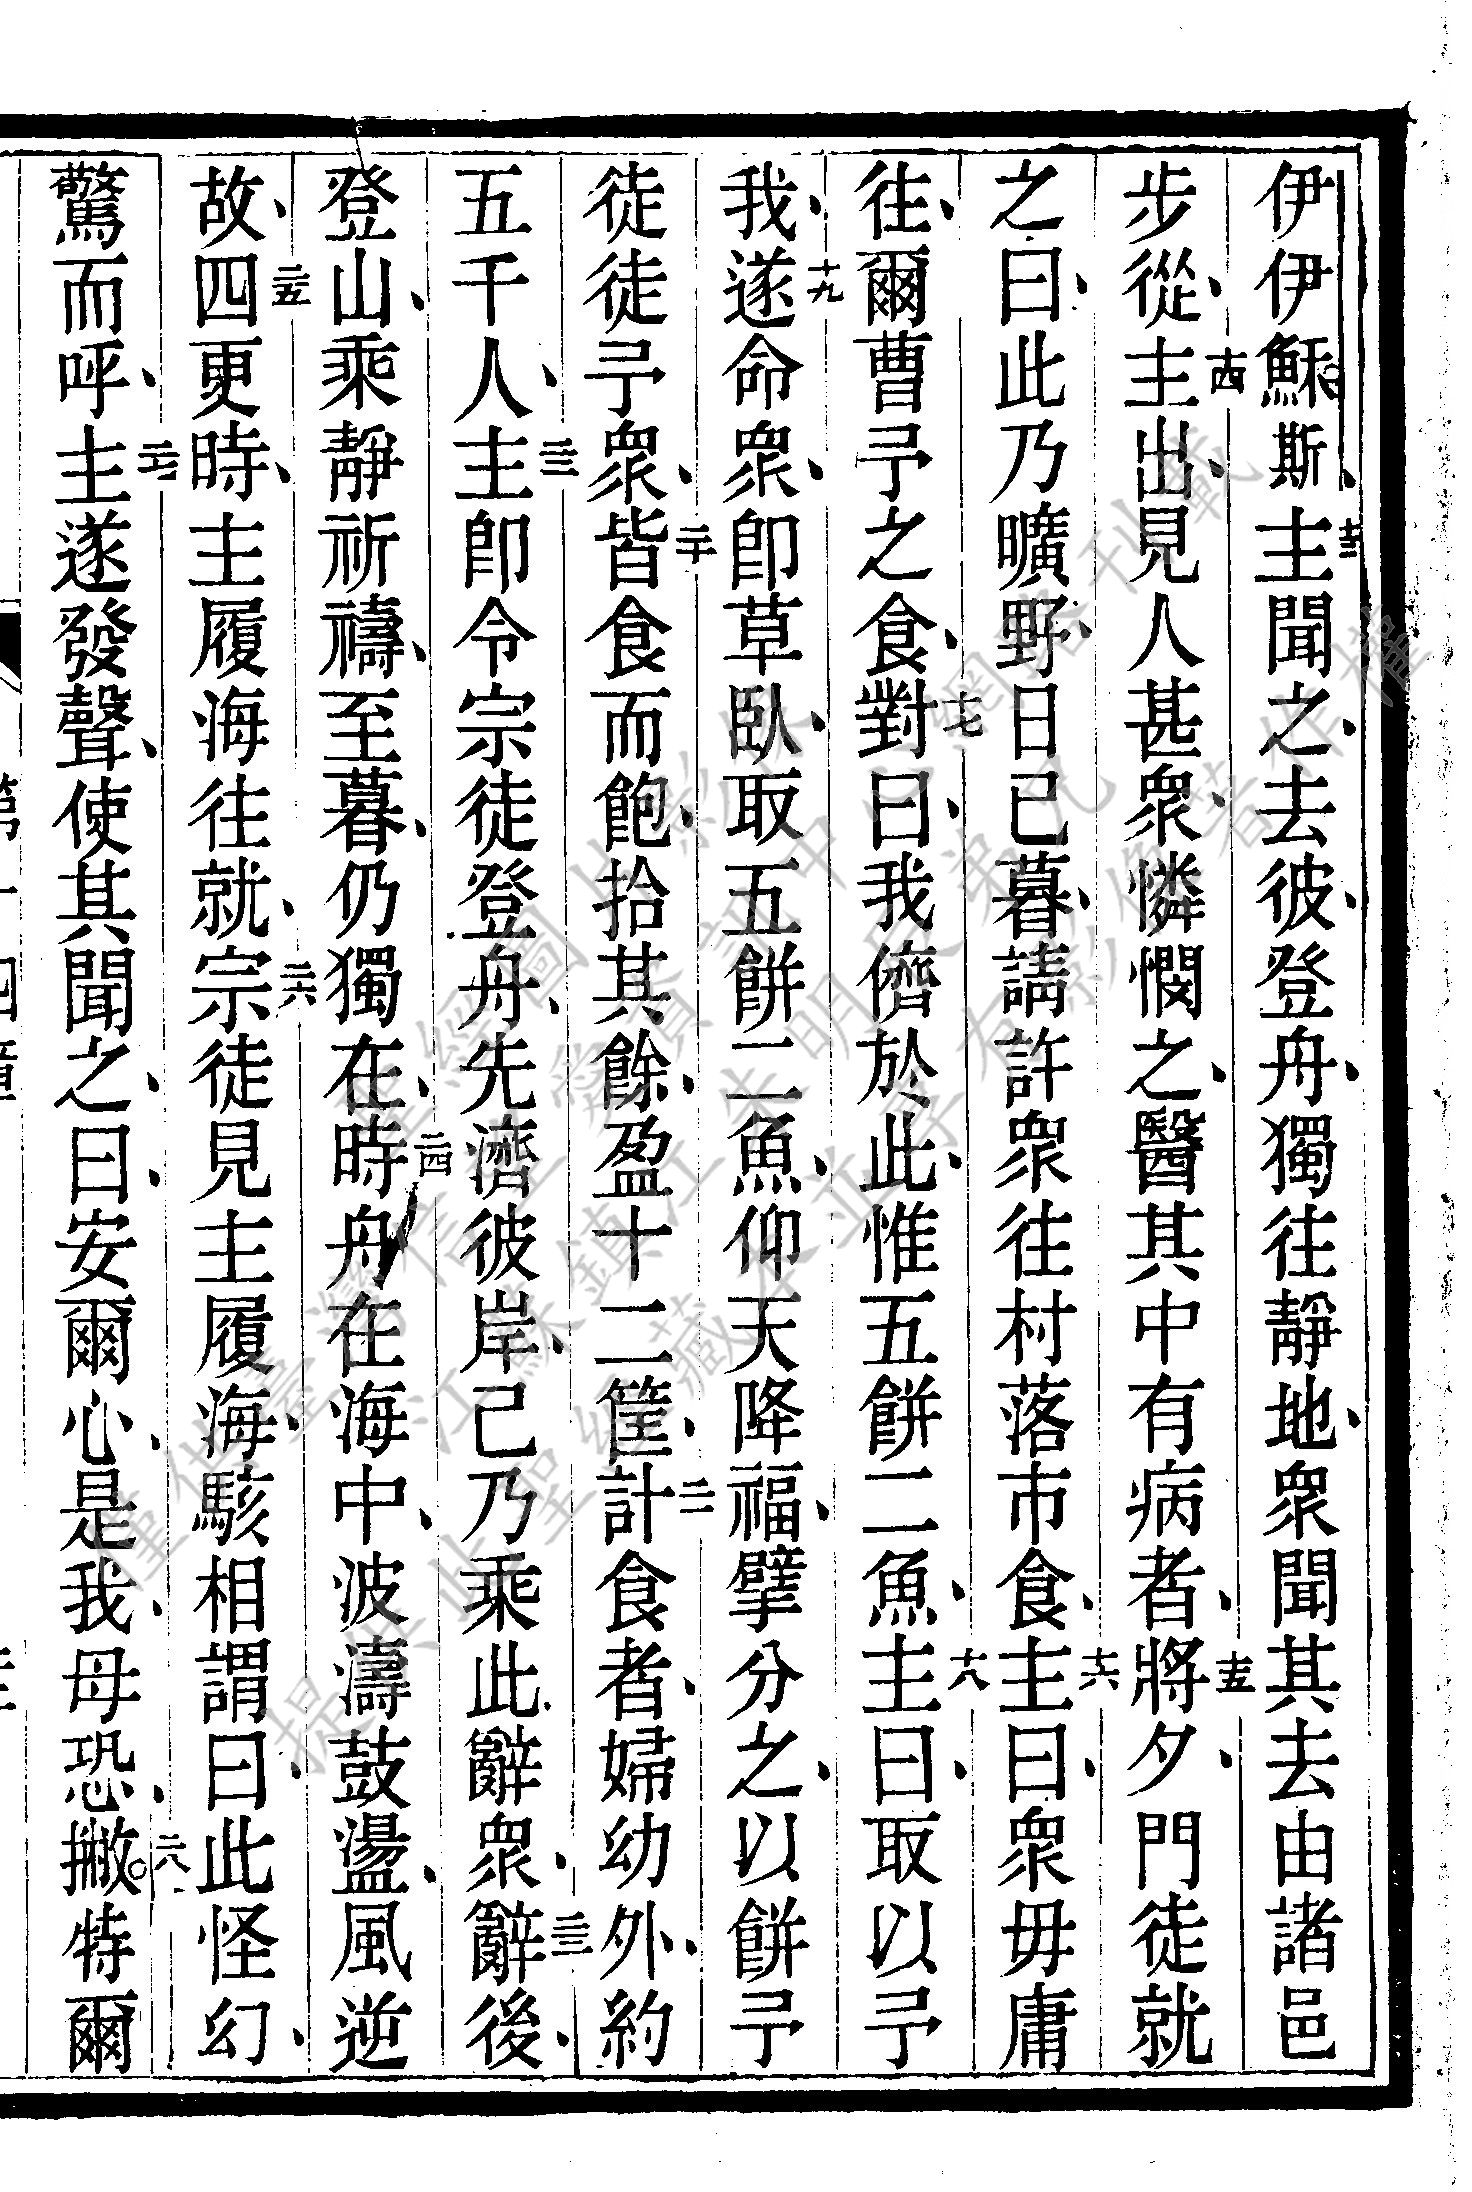 伊伊穌斯、十三主聞之、去彼、登舟、獨往靜地、衆聞其去由諸邑
步從、十四主出、見人甚衆、憐憫之、醫其中有病者、十五將夕、門徒就
之曰、此乃曠野、日已暮、請許衆往村落市食、十六主曰、衆毋庸
往、爾曹予之食、十七對曰、我儕於此、惟五餅二魚、十八主曰、取以予
我、十九遂命衆、卽草臥、取五餅二魚、仰天降福、擘分之、以餅予
徒徒予衆、二十皆食而飽、拾其餘、盈十二筐、二一計食者、婦幼外、約
五千人、二二主卽令宗徒登舟、先濟彼岸、己乃乘此辭衆、二三辭後、
登山、乘靜祈禱、至暮、仍獨在、二四時舟在海中、波濤鼓盪、風逆
故、二五四更時、主履海往就、二六宗徒見主履海、駭相謂曰、此怪幻、
驚而呼、二七主遂發聲、使其聞之、曰、安爾心、是我、毋恐、二八撇特爾
第十四章